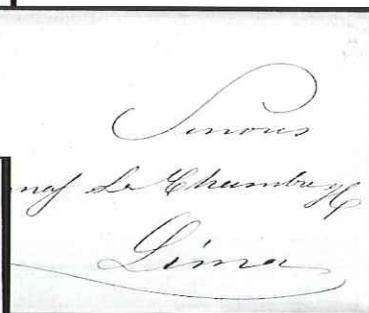 Senores
Le Chambre
Lima